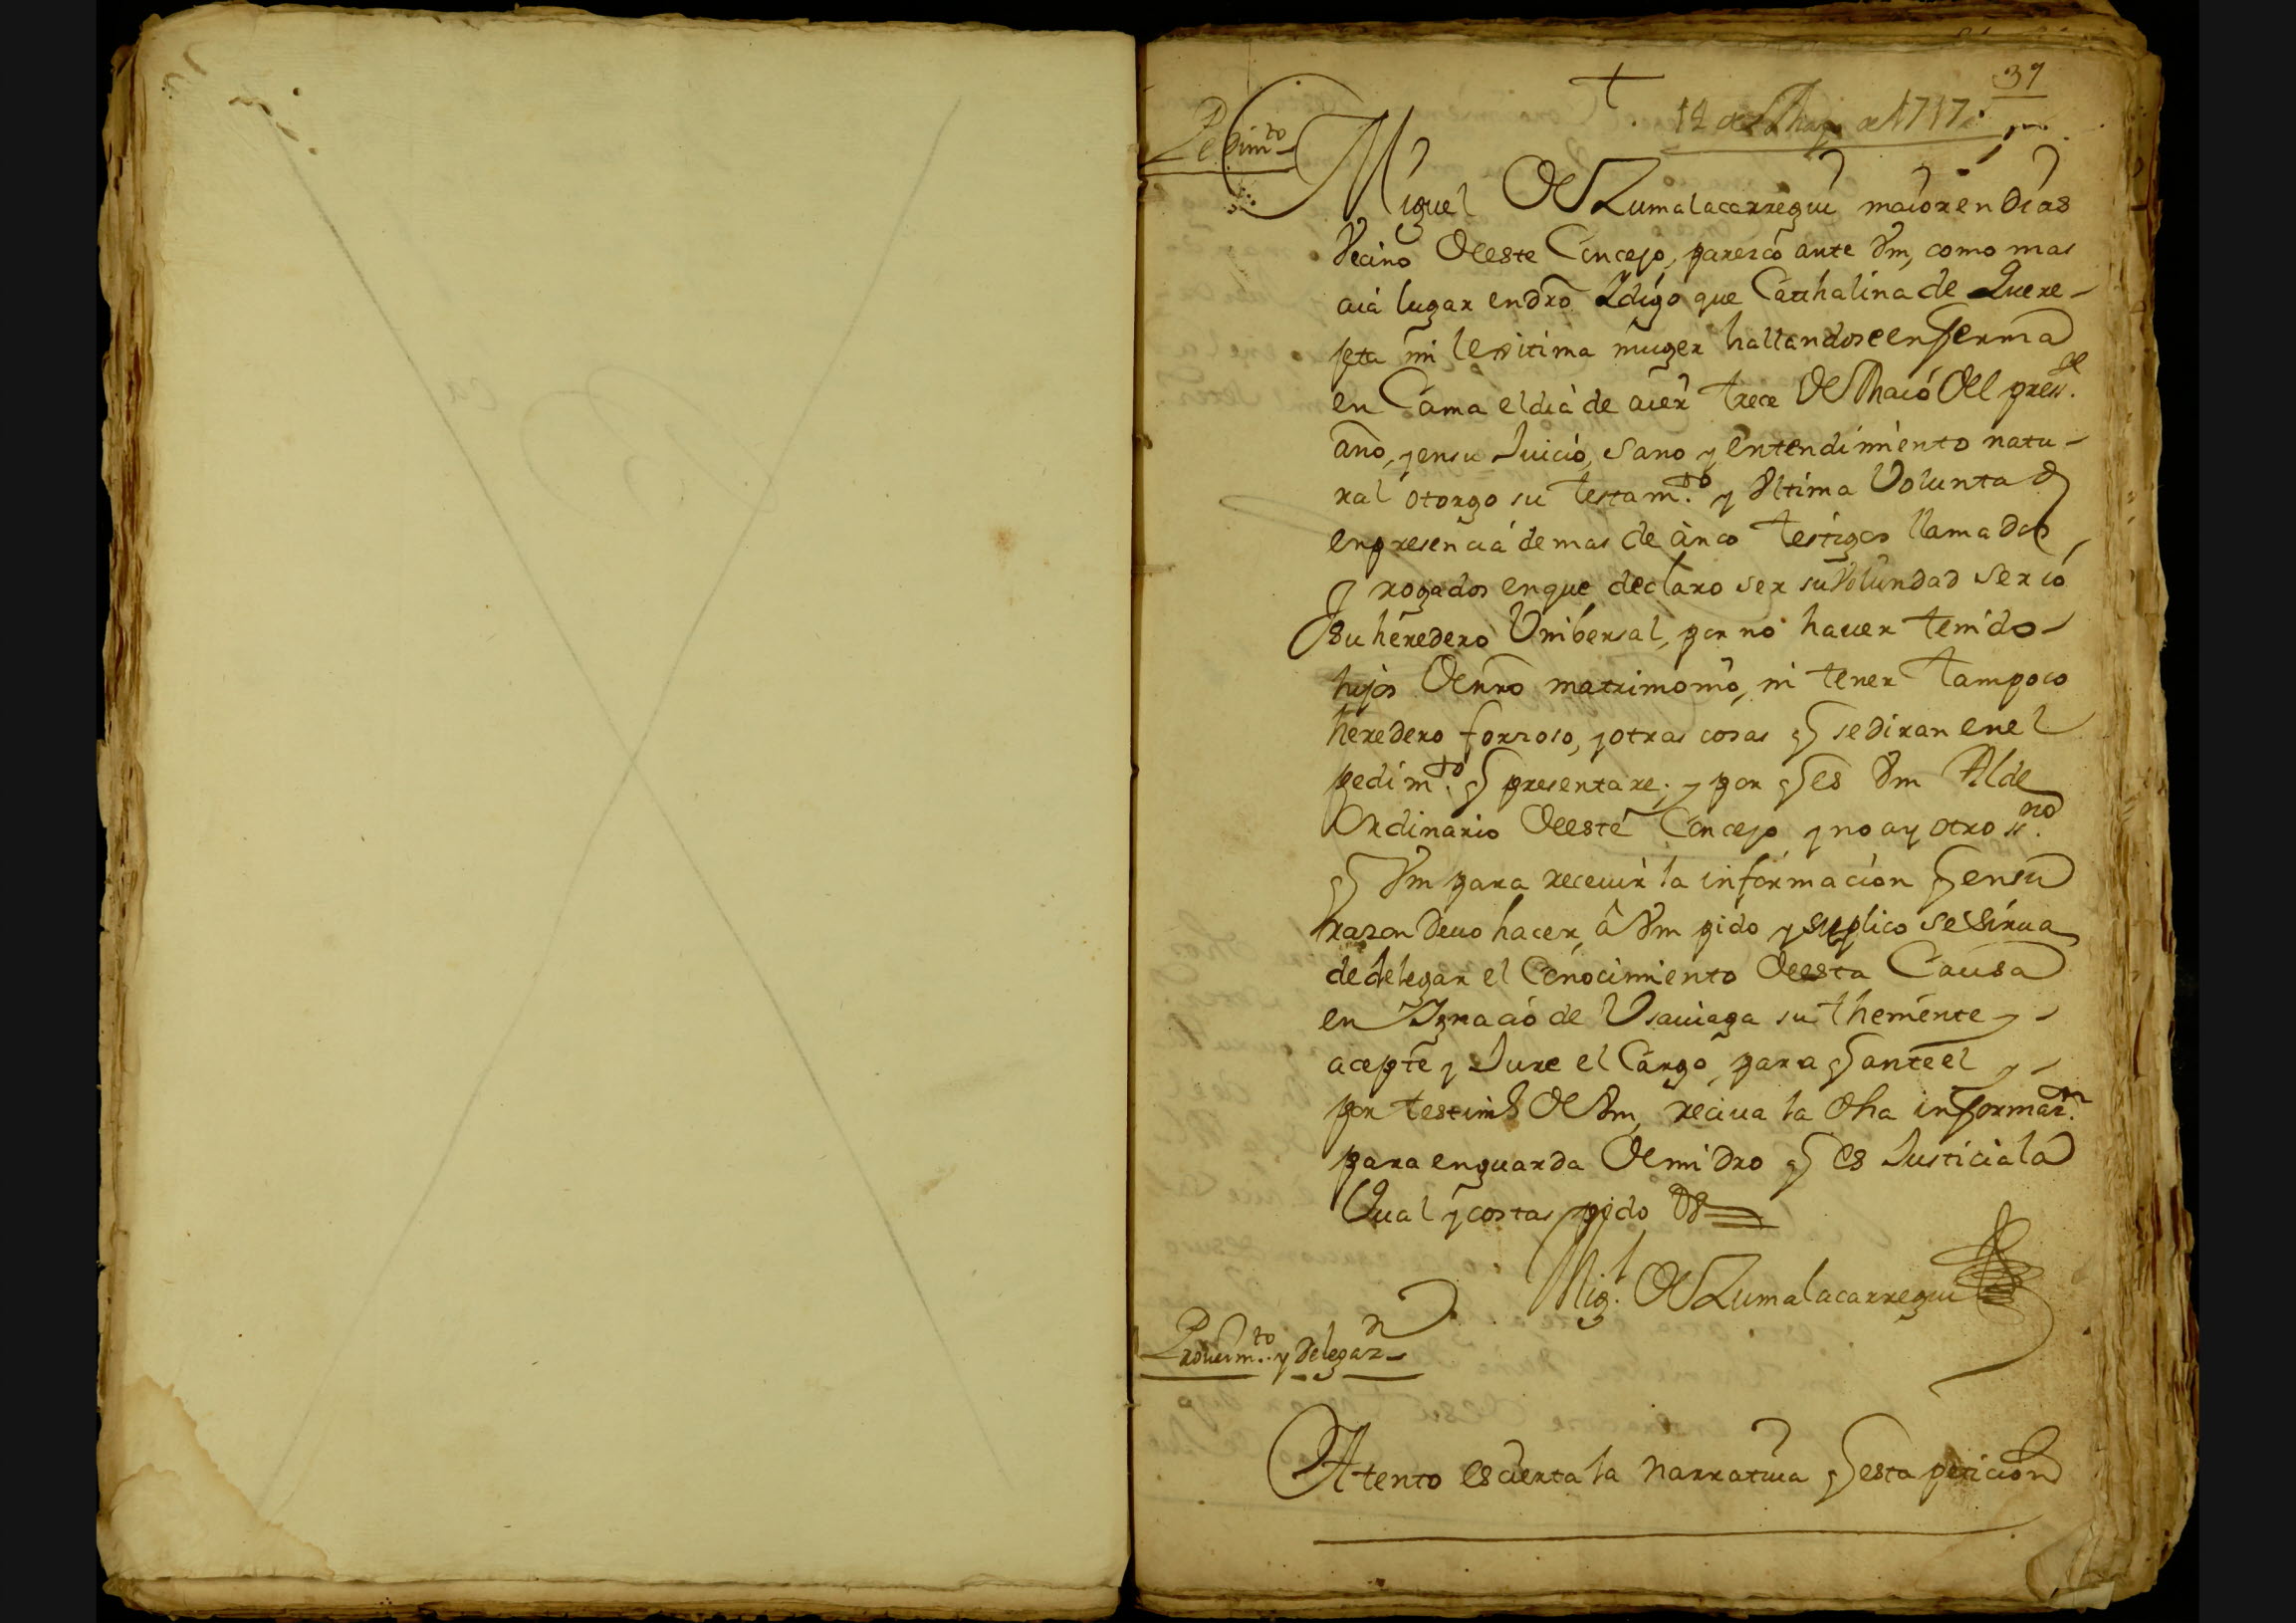 39
12 de Maio de 1717
Pedim.to
Miguel De Zumalacarregui maior en dias
Vecino Deeste Concejo, paresco ante Vm, como mas
aia lugar en dro Y digo que Cathalina de Quere-
jeta mi lexitima muger hallandose enferma
en Cama el dia de aier trece De Maio Del press.te
año, y en su Juicio, sano y entendimiento natu-
ral otorgo su testam.to y Vltima Voluntad
en presencia de mas de cinco testigos llamados,
y rogados en que declaro ser su Voluntad ser io
su heredero Vnibersal, por no hauer tenido-
hijos De nro matrimonio, ni tener tampoco
heredero forzoso, y otras cosas q se diran en el
pedim.to q presentare; y por q es Vm Alde
Ordinario Deeste Concejo y no ay otro ss.no
q Vm para receuir la informacion q en su
razon deuo hacer, â Vm pido y suplico se sirua
de delegar el Conocimiento Deesta Causa
en Ygnacio de Vsauiaga su theniente y-
acepte y Jure el Cargo, para q ante el y-
por testimo De Vm, reciua la dha informaz.n
para en guarda De mi dro q es Justicia la
Qual y costas pido &
Mig.l De Zumalacarregui
Proueim.to y delegaz.n
Atento es cierta la narratiua q esta peticion